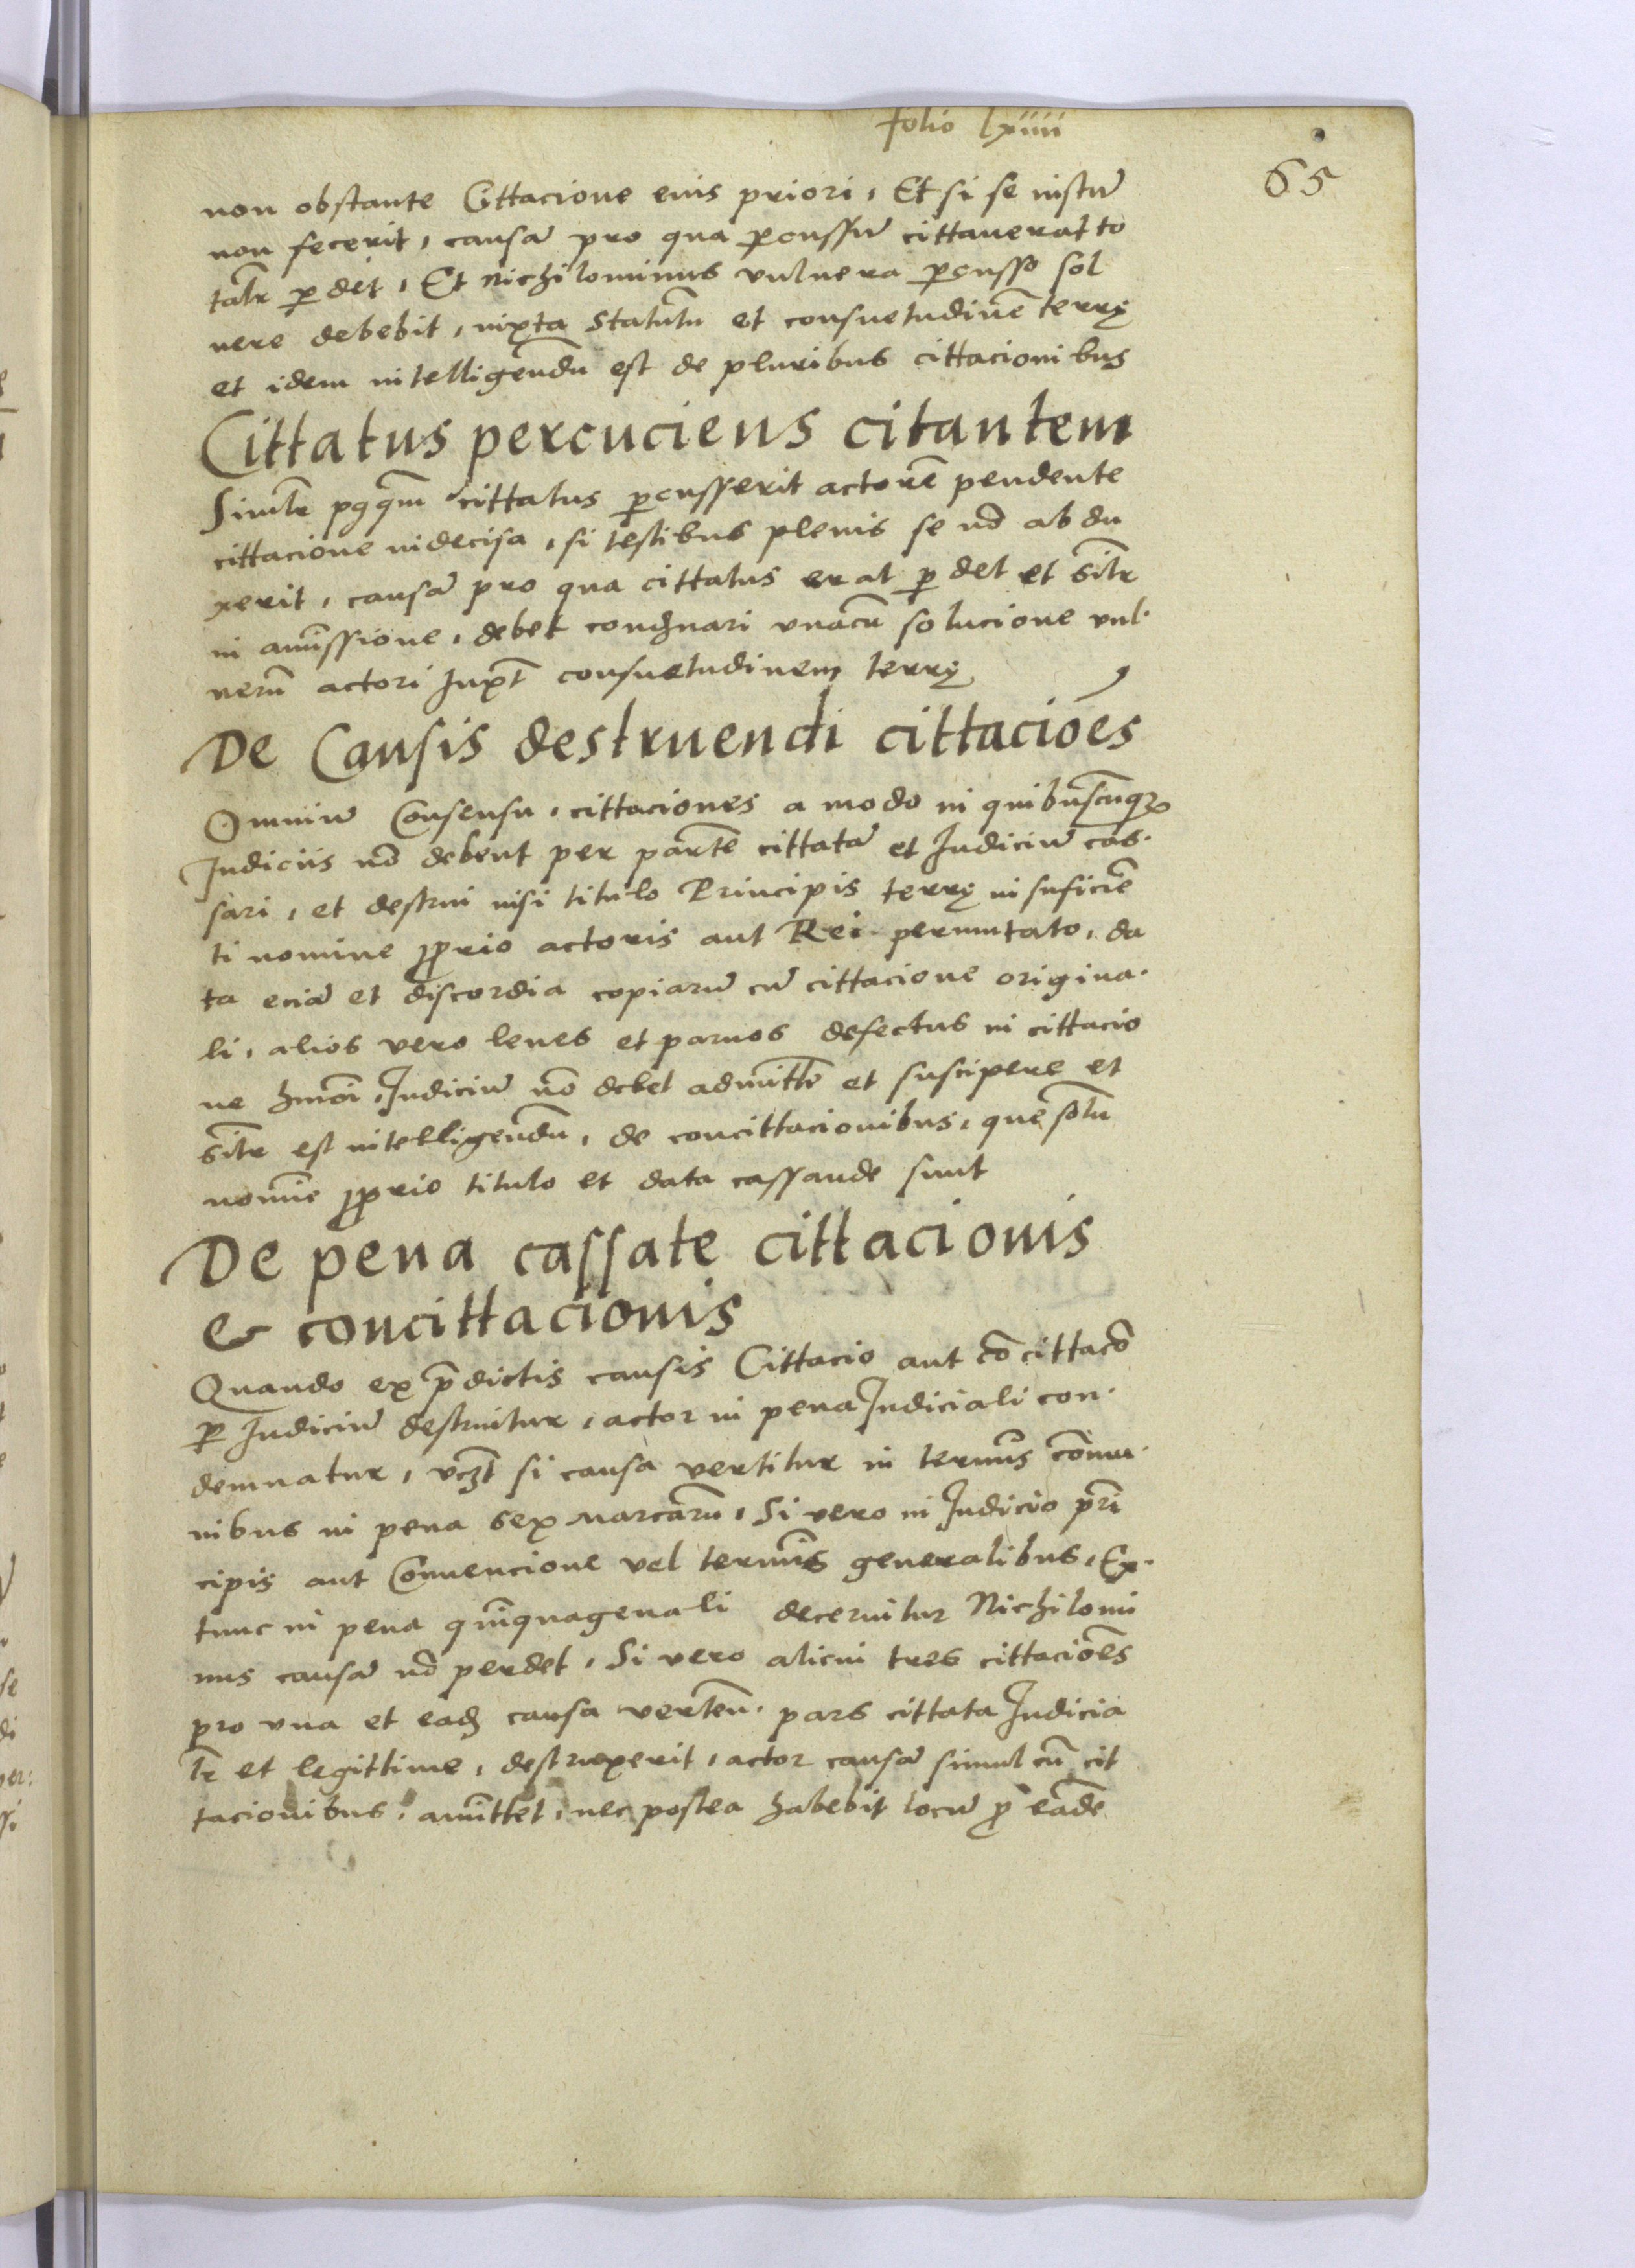 folio lxiiii
65
non obstante Cittacione eius priori, Et si se iustū
non fecerit, causā pro qua ꝑcussū cittauerat to
talr̄ ꝑdet, Et nichilominus vulnera ꝑcusso sol
uere debebit, iuxta Statutū et consuetudinē terrę
et idem intelligendū est de pluribus cittacionibus
Cittatus percuciens citantem
Simlr̄ pꝯqm̄ cittatus ꝑcusserit actorē pendente
cittacione indecisa, si testibus plenis se nō abdu
xerit, causā pro qua cittatus erat ꝑdet et silr̄
in amissione, debet condnari vnacū solucione vul.
nerū actori Juxt̄ consuetudinem terrę
De Causis destruendi cittacioēs
Omniū Consensu, cittaciones a modo in quibuscūqꝫ
Judiciis nō debent per partē cittatā et Judiciū cas.
sari, et destrui nisi titulo Principis terrę insuficiē
ti nomine ꝓprio actoris aut Rei permutato, da
ta eciā et discordia copiarū cū cittacione origina.
li, alios vero leues et paruos defectus in cittacio
ne hmōi, Judiciū nō debet admittē et suscipere et
silr̄ est intelligendū, de concittacionibus, que solū
nomīe ꝓprio titulo et data cassande sunt
De pena cassate cittacionis
& concittacionis
Quando ex p̄dictis causis Cittacio aut cōcittacō
ꝑ Judiciū destruitur, actor in pena Judiciali con.
demnatur, vcꝫt si causa vertitur in termīs cōmu.
nibus in pena sex marcarū, Si vero in Judicio prī
cipis aut Conuencione vel termīs generalibus, Ex.
tunc in pena quīquagenali decernitur Nichilomi
nus causā nō perdet, Si vero alicui tres cittacioēs
pro vna et eadꝫ causa verten̄. pars cittata Judicia
lr̄ et legittime, destruxerit, actor causā simul cū cit
tacionibus, amittet, nec postea habebit locū ꝓ eadē